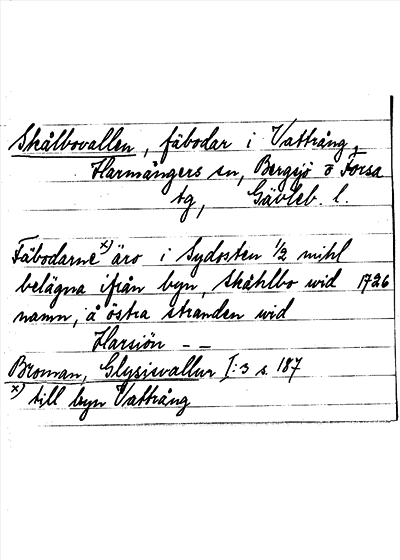 Skålbovallen, fäbodar i Vattrång,
Harmångers sn, Bergsjö o Forsa
tg, Gävleb. l.
Fäbodarne x) äro i Sydosten 1/2 mihl
belägna ifrån byn, Skåhlbo wid 1726
namn, å östra stranden wid
Harsjön - -
Broman, Glysisvallur I:3 s. 187
x) till byn Vattrång